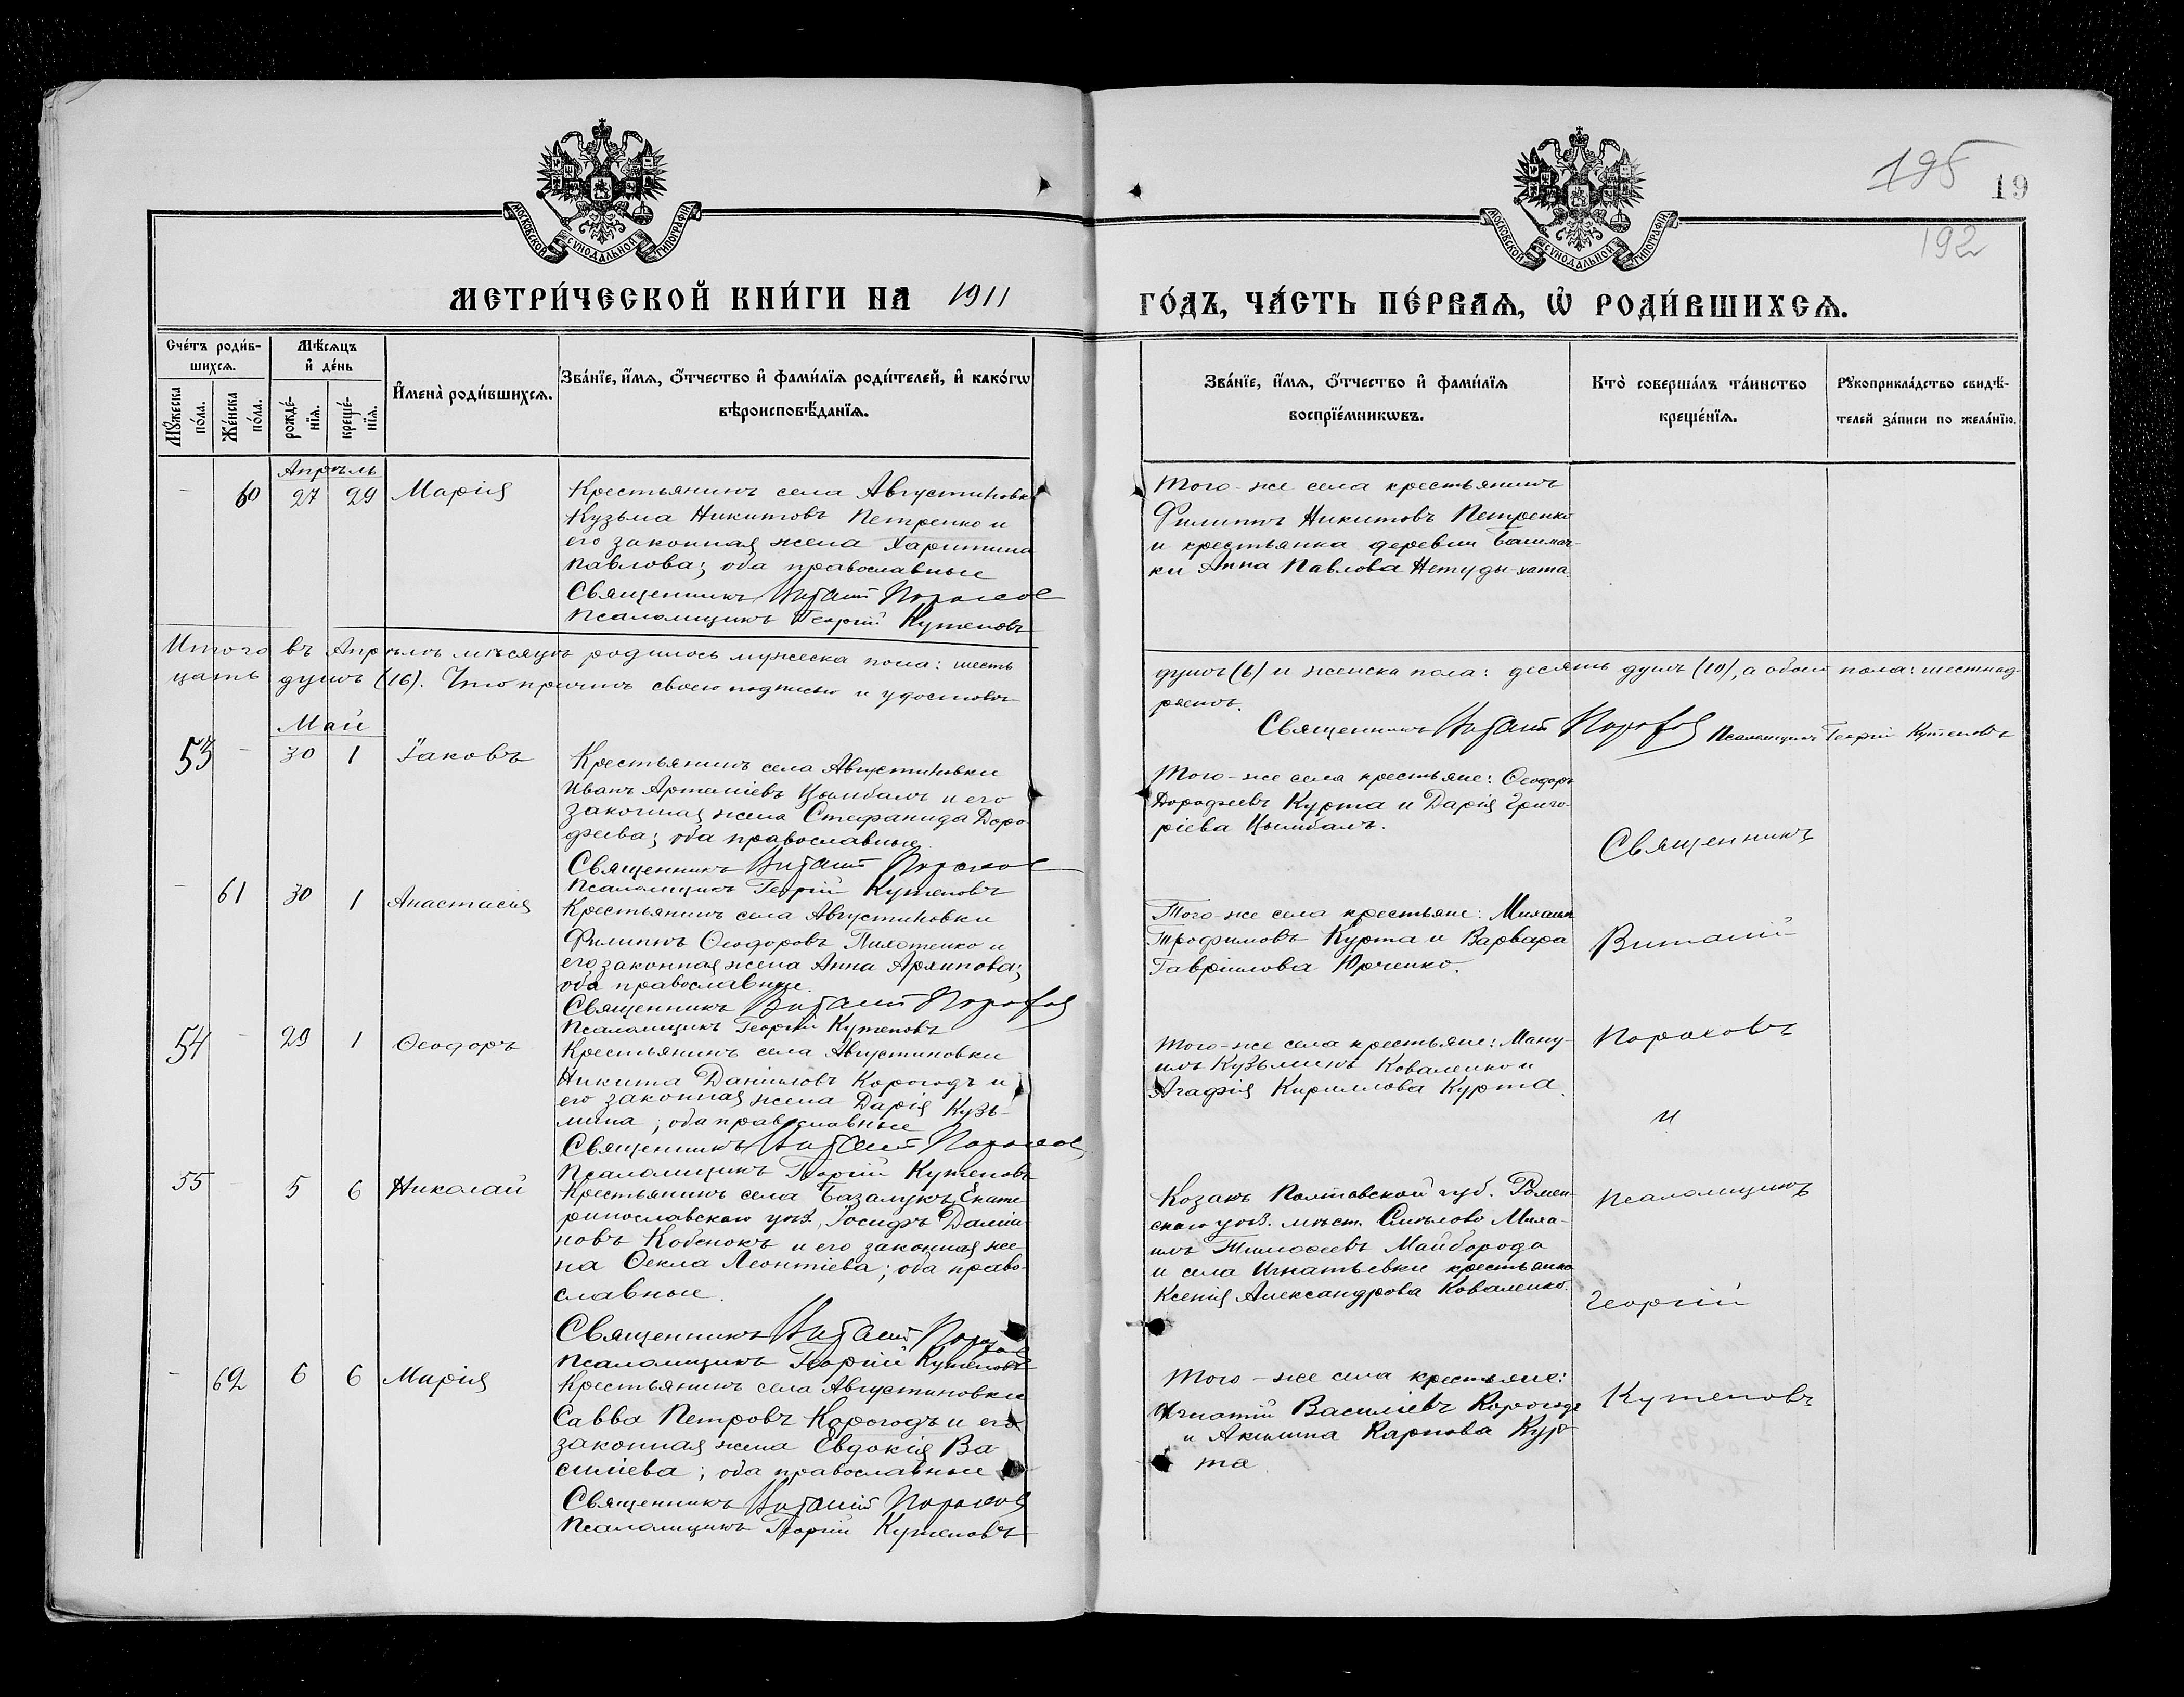 195
19
192
МОСКОВСКОЙ СѴНОДАЛЬНОЙ ТИПОГРАФІИ
МОСКОВСКОЙ СѴНОДАЛЬНОЙ ТИПОГРАФІИ
МЕТРИ́ЧЕСКОЙ КНИ́ГИ НА 1911
ГО́ДЪ, ЧА́СТЬ ПЕ́РВАѦ, Ѡ҆ РОДИ́ВШИХСѦ.
Сче́тъ роди́в-
шихсѧ.
Мꙋ́жеска по́ла.
Же́нска по́ла.
Мѣ́сѧцъ
и҆ де́нь
рожде́-
нїѧ.
креще́-
нїѧ.
И҆мена̀ роди́вшихсѧ.
Зва́нїе, и҆́мѧ, ѻ҆́тчество и҆ фами́лїѧ роди́телей, и҆ како́гѡ
вѣроисповѣ́данїѧ.
Зва́нїе, и҆́мѧ, ѻ҆́тчество и҆ фами́лїѧ
воспрїе́мникѡвъ.
Кто̀ соверша́лъ та́инство
креще́нїѧ.
Рꙋкоприкла́дство свидѣ́-
телей за́писи по жела́нїю.
Апрѣль
- 60 27 29 Марія
Крестьянинъ села Августиновки
Кузьма Никитовъ Петренко и
его законная жена Харитина
Павлова; оба православные
Священникъ Виталій Пороховъ
Псаломщикъ Георгій Кутеповъ
Того-же села крестьянинъ
Филиппъ Никитовъ Петренко
и крестьянка деревни Башмач-
ки Анна Павлова Нетуды-хата.
Итого въ Апрѣлѣ мѣсяцѣ родилось мужеска пола: шесть
душъ (6) и женска пола: десять душъ (10), а обоего пола: шестнад-
цать душъ (16). Что причтъ своею подписью и удостовѣ-
ряетъ.
Священникъ Виталій Пороховъ Псаломщикъ Георгій Кутеповъ
Май
53 - 30 1 Іаковъ
Крестьянинъ села Августиновки
Иванъ Артеміевъ Цымбалъ и его
законная жена Стефанида Доро-
феева; оба православные.
Священникъ Виталій Пороховъ
Псаломщикъ Георгій Кутеповъ
Того-же села крестьяне: Ѳеодоръ
Дорофеевъ Курта и Дарія Григо-
ріева Цымбалъ.
Священникъ
- 61 30 1 Анастасія
Крестьянинъ села Августиновки
Филиппъ Ѳеодоровъ Пилотенко и
его законная жена Анна Архипова;
оба православные.
Священникъ Виталій Пороховъ
Псаломщикъ Георгій Кутеповъ
Того-же села крестьяне: Михаилъ
Трофимовъ Курта и Варвара
Гавріилова Юрченко.
Виталій
54 - 29 1 Ѳеодоръ
Крестьянинъ села Августиновки
Никита Даніиловъ Корогодъ и
его законная жена Дарія Кузь-
мина; оба православные
Священникъ Виталій Пороховъ
Псаломщикъ Георгій Кутеповъ
Того-же села крестьяне: Ману-
илъ Кузьминъ Коваленко и
Агафія Кириллова Курта.
Пороховъ
и
55 - 5 6 Николай
Крестьянинъ села Базалукъ, Екате-
ринославскаго уѣз., Іосифъ Даміа-
новъ Кобенокъ и его законная же-
на Ѳекла Леонтіева; оба право-
славные.
Священникъ Виталій Пороховъ
Псаломщикъ Георгій Кутеповъ
Козакъ Полтавской губ. Ромен-
скаго уѣз. мѣст. Смѣлово Миха-
илъ Тимоѳеевъ Майборода
и села Игнатьевки крестьянка
Ксенія Александрова Коваленко.
Псаломщикъ
Георгій
- 62 6 6 Марія
Крестьянинъ села Августиновки
Савва Петровъ Корогодъ и его
законная жена Евдокія Ва-
силіева; оба православные
Священникъ Виталій Пороховъ
Псаломщикъ Георгій Кутеповъ
Того-же села крестьяне:
Игнатій Василіевъ Корогодъ
и Акилина Карпова Кур-
та
Кутеповъ